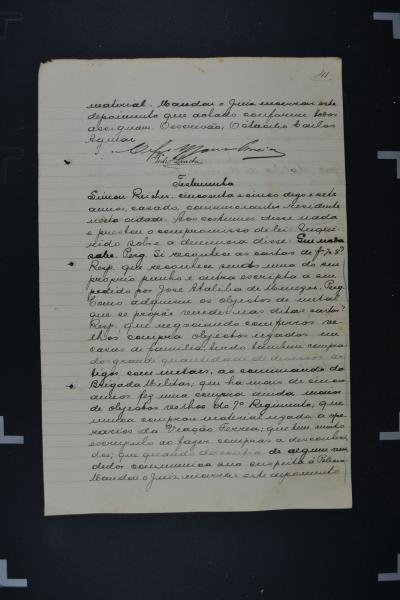 41
material. Mandou o Juiz encerrar este
depoimento que achado conforme todos
assignam. O escrivão, Octacilio Carlos
Aguiar
Testemunha
Simon Reicher, cincoenta e cinco digo e sete
annos, casado, commerciante, residente
nesta cidade. Aos costumes disse nada
e prestou o compromisso de lei. Inqui
rido sobre a denuncia disse: Em nada
sabe. Perg. Si reconhece as cartas de fs
Resp. que reconhece sendo uma do seu
proprio punho e outra escripta a seu
pedido por José Menezes. Perg.
Como adquiriu os objectos de metal
que se propôs vender nas ditas cartas?
Resp. que negociando com ferros ve
lhos compra objectos usados em
casas de familia, tendo tambem compra
do grande quantidade de diversos ar
tigos com metaes, ao commando da
Brigada Militar; que ha mais de cinco
annos fez uma compra ainda maior
de objectos velhos do 7º Regimento; que
nunca comprou material usado a ope
rarios da Viação Ferrea; que tem muito
escrupulo ao fazer compras a desconheci
dos; que quando desconfia de algum ven
dedor communica sua suspeita á Policia.
Mandou o Juiz encerrar este depoimento